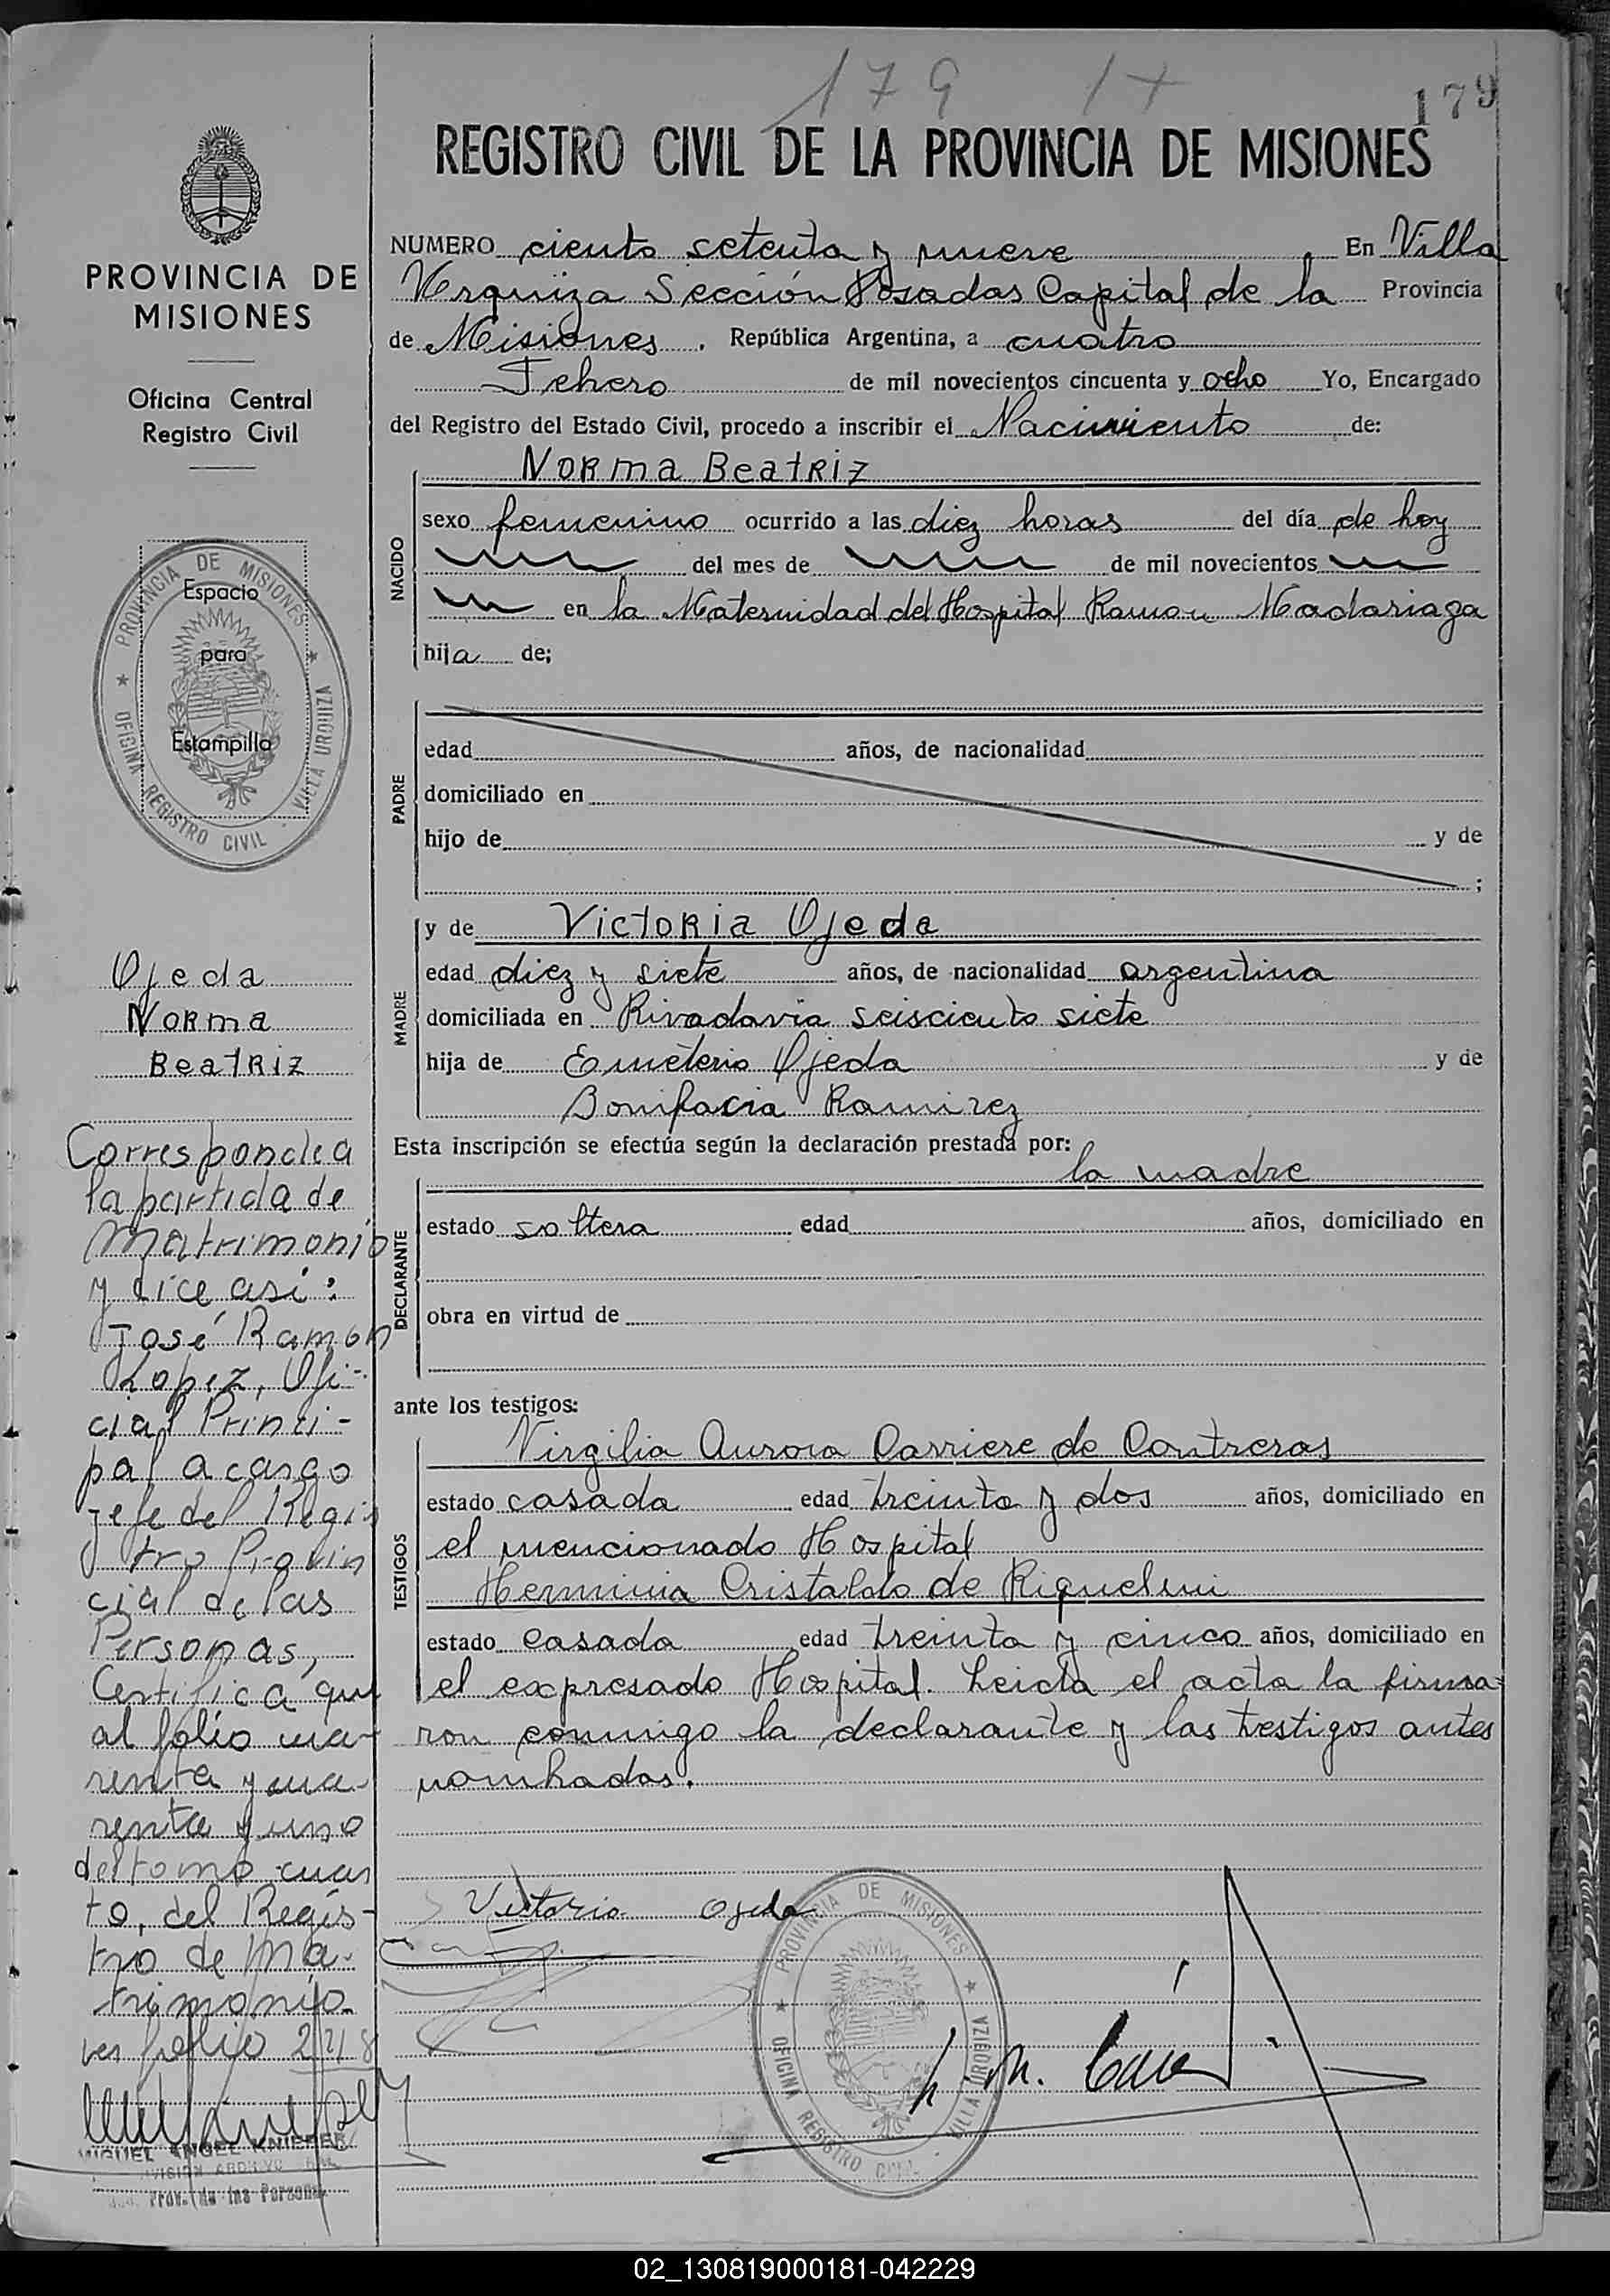 179 1+
179
REGISTRO CIVIL DE LA PROVINCIA DE MISIONES
PROVINCIA DE
MISIONES
Oficina Central
Registro Civil
PROVINCIA DE MISIONES
OFICINA REGISTRO CIVIL - VILLA URQUIZA
Espacio
para
Estampilla
Ojeda
Norma
Beatriz
Corresponde a
la partida de
Matrimonio
y dice asi:
José Ramón
Lopez, Ofi-
cial Princi-
pal a cargo
jefe del Regis
tro Provin
cial de las
Personas,
Certifica que
al folio cua-
renta y cua-
renta y uno
del tomo cuar
to, del Regis-
tro de Ma-
trimonio
ver folio 248
MIGUEL ANGEL KNIEPER
DIVISION ARCHIVO
Prov. de las Personas
NUMERO ciento setenta y nueve En Villa
Urquiza Sección Posadas Capital de la Provincia
de Misiones, República Argentina, a cuatro
Febrero de mil novecientos cincuenta y ocho Yo, Encargado
del Registro del Estado Civil, procedo a inscribir el Nacimiento de:
NACIDO
Norma Beatriz
sexo femenino ocurrido a las diez horas del día de hoy
del mes de de mil novecientos
en la Maternidad del Hospital Ramon Madariaga
hija de;
PADRE
edad años, de nacionalidad
domiciliado en
hijo de y de
;
MADRE
y de Victoria Ojeda
edad diez y siete años, de nacionalidad argentina
domiciliada en Rivadavia seisciento siete
hija de Emeterio Ojeda y de
Bonifacia Ramirez
Esta inscripción se efectúa según la declaración prestada por:
DECLARANTE
la madre
estado soltera edad años, domiciliado en
obra en virtud de
ante los testigos:
TESTIGOS
Virgilia Aurora Carriere de Contreras
estado casada edad treinta y dos años, domiciliado en
el mencionado Hospital
Herminia Cristaldo de Riquelmi
estado casada edad treinta y cinco años, domiciliado en
el expresado Hospital. Leida el acta la firma-
ron conmigo la declarante y las testigos antes
nombradas.
Victoria Ojeda
PROVINCIA DE MISIONES
OFICINA REGISTRO CIVIL - VILLA URQUIZA
02_130819000181-042229